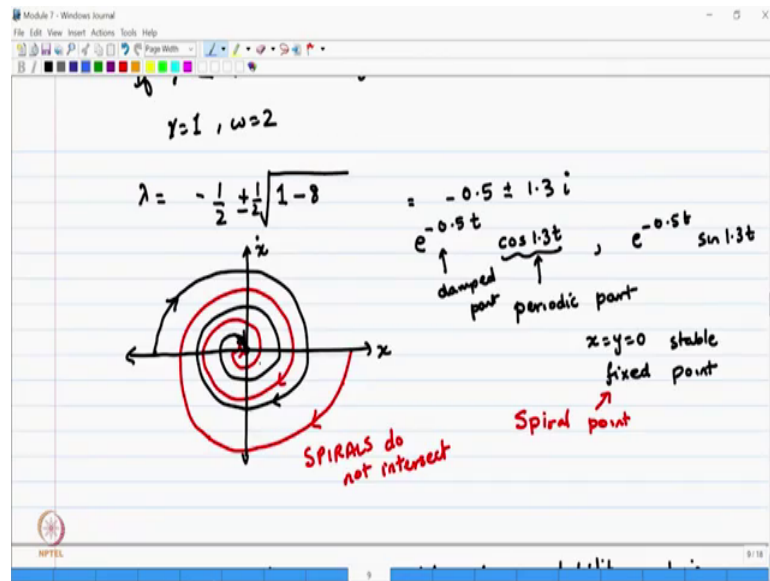 Module 7 - Windows Journal
File Edit View Insert Actions Tools Help
Page Width
B I
γ=1 , ω=2
λ = - 1/2 ± 1/2 √(1-8) = -0.5 ± 1.3 i
e^(-0.5t) cos 1.3t , e^(-0.5t) sin 1.3t
damped part
periodic part
ẋ
x
x=y=0 stable
fixed point
Spiral point
SPIRALS do
not intersect
NPTEL
9/18
9